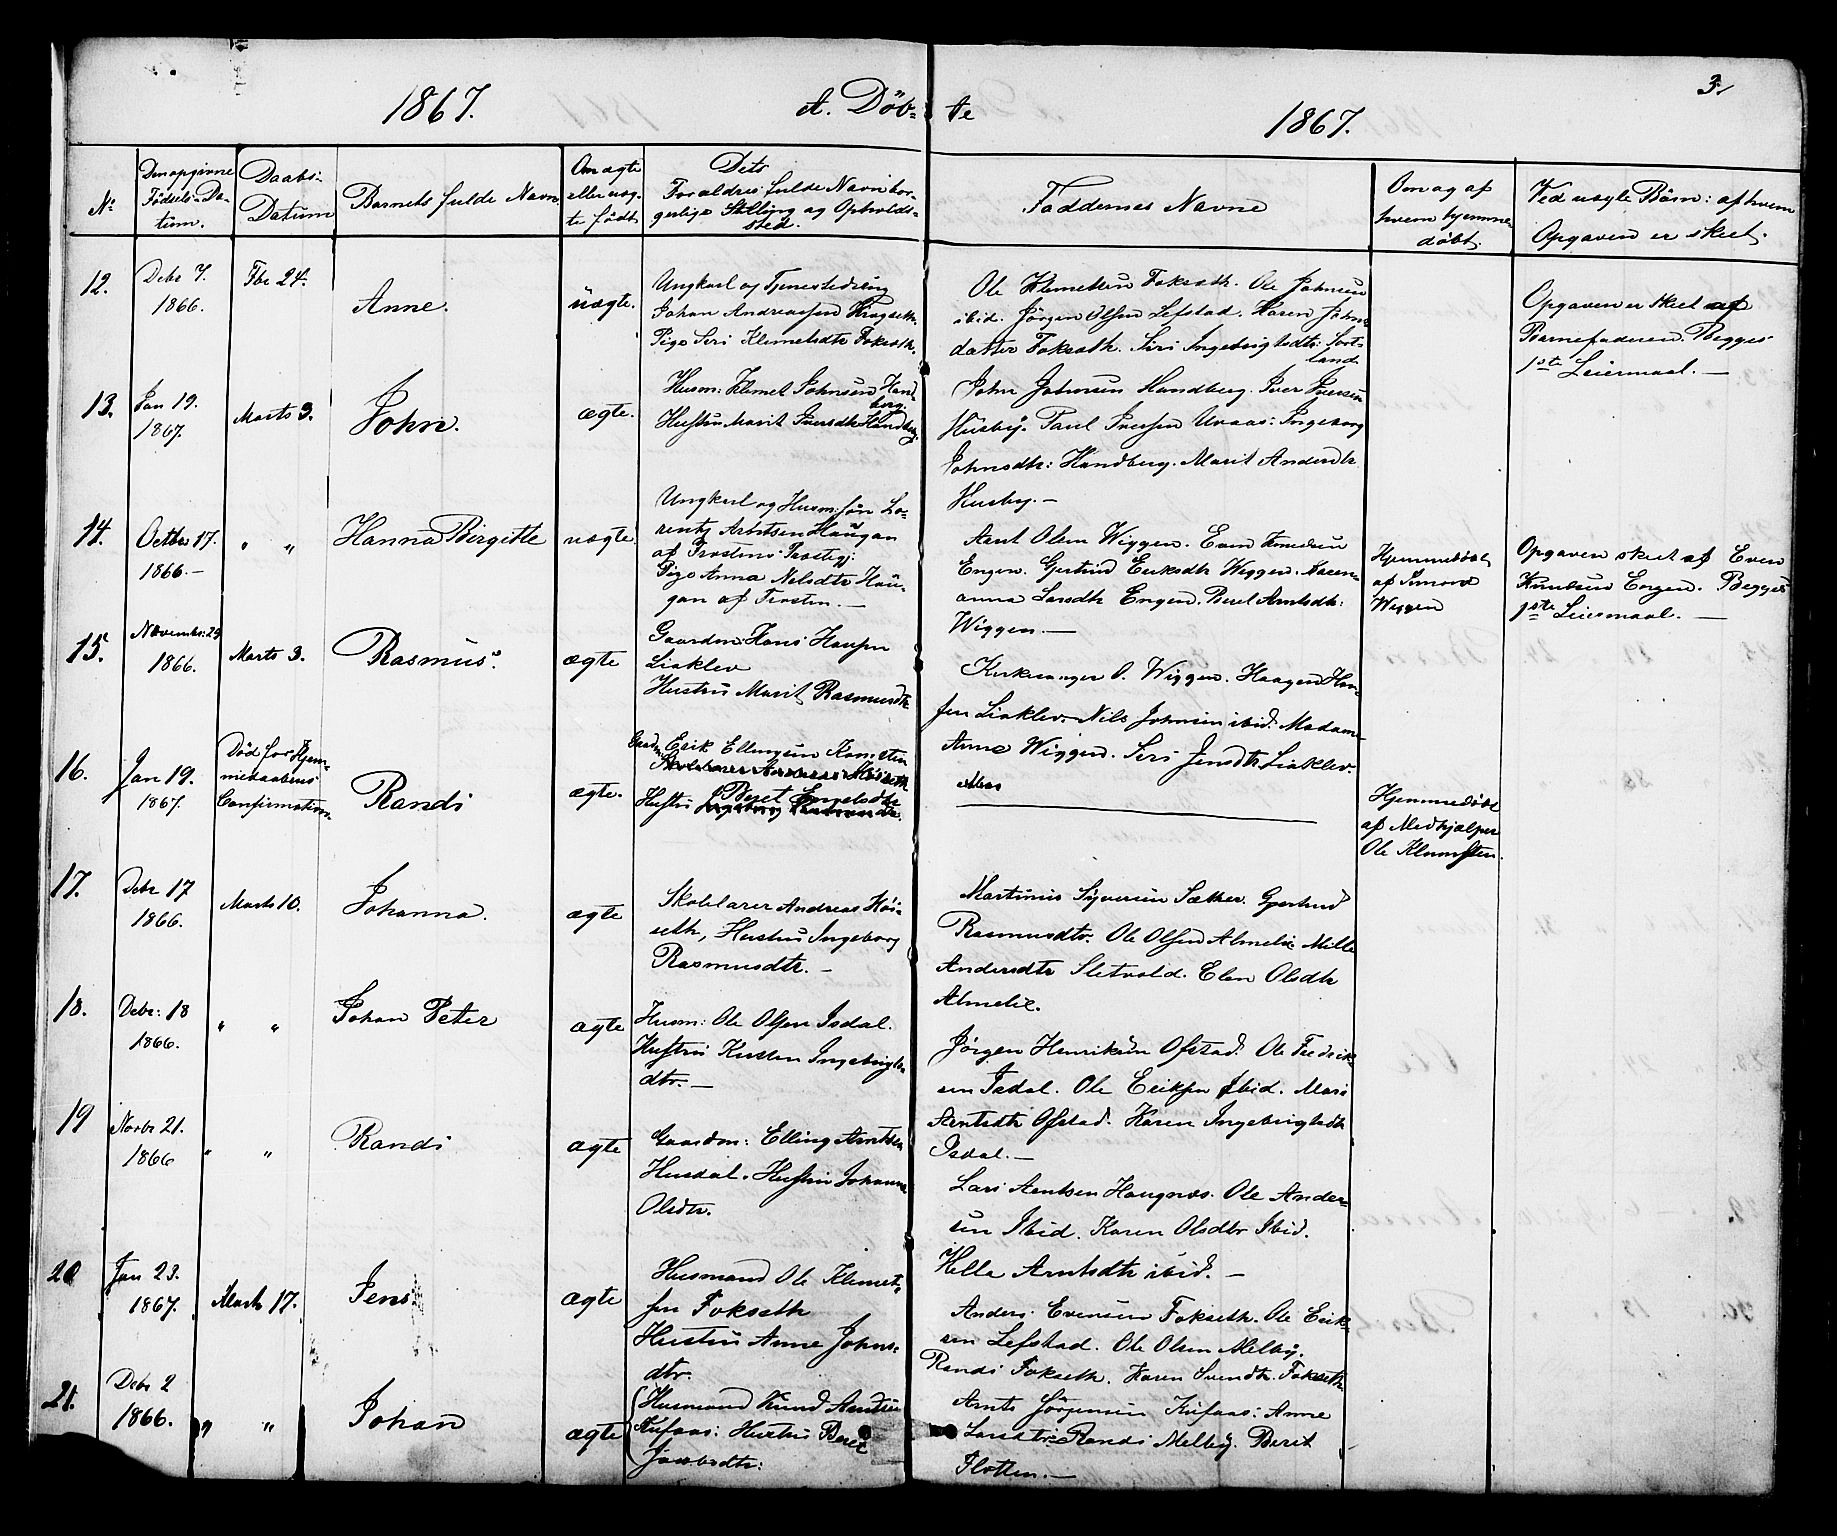 3
1867. A. Døb- te 1867.
No
Den opgivne Fødsels-Datum.
Daabs-Datum
Barnets fulde Navn
Om ægte eller uægte født
Dets Forældres fulde Navn borgerlige Stilling og Opholdssted.
Faddernes Navne
Om og af hvem hjemmedøbt.
Ved uægte Børn: af hvem Opgaven er skeet.
12.
Debr 7.
1866.
Fbr 24.
Anne.
uægte.
Ungkarl og Tjenestedreng
Johan Andreassen Kragseth.
Pige Seri Klemetsdtr Fokseth.
Ole Klemetsen Fokseth. Ole Johnsen
ibid. Jørgen Olsen Lefstad. Karen Johns
datter Fokseth. Siri Ingebrigtsdtr:
land.
Opgaven er skeet af
Barnefaderen. Begges
1ste Leiermaal. —
13.
Jan 19.
1867.
Marts 3.
John.
ægte.
Husm: Klemet Johnsen Hand-
berg.
Hustru Marit Iversdtr Handberg.
John Johnsen Handberg. Iver Iversen
Husby. Paul Iversen Uvaas: Ingeborg
Johnsdtr: Handberg. Marit Andersdtr
Husby. —
14.
Octbr 17.
1866. —
" "
Hanna Birgitte
uægte.
Ungkarl og Husm: søn Lo-
rentz Arntsen Haugan
af Frosten:
Pige Anna Nelsdtr Hau-
gan af Frosten. —
Arnt Olsen Wiggen. Even Knudsen
Engen. Gertrud Eriksdtr Wiggen. Karen-
anna Larsdtr Engen. Beret Arntsdtr:
Wiggen. —
Hjemmedøbt
af Simond
Wiggen
Opgaven skeet af Even
Knudsen Engen. Begges
1ste Leiermaal. —
15.
November 29
1866.
Marts 3.
Rasmus.
ægte
Gaardm: Hans Hansen
Liaklev
Hustru Marit Rasmusdtr
Kirkesanger O. Wiggen. Haagen Han-
sen Liaklev. Nils Johnsen ibid. Madam
Anne Wiggen. Seri Jensdtr Liaklev.
16.
Jan 19.
1867.
Død før Hjem-
medaabens
Confirmation.
Randi
ægte.
Gaardm. Erik Ellingsen
Skolelærer Andreas Høiseth
Hustru Beret Engelsdtr
Hjemmedøbt
af Medhjælper
Ole
17.
Debr 17
1866.
Marts 10.
Johanna.
ægte
Skolelærer Andreas Høi-
seth, Hustru Ingeborg
Rasmusdtr. —
Martinus Syversen Sæther. Gjertrud
Rasmusdtr. Ole Olsen Almelie Mille
Andersdtr Sletvold. Elen Olsdtr
Almelie.
18.
Debr: 18
1866.
" "
Johan Peter
ægte
Husm: Ole Olsen Isdal.
Hustru Kirsten Ingebrigts-
dtr. —
Jørgen Henriksen Ofstad. Ole Fredrik-
sen Isdal. Ole Eriksen Ibid. Mari
Arntsdtr Ofstad. Karen Ingebrigtsdtr
Isdal. —
19
Novbr 21.
1866
" "
Randi
ægte
Gaardm: Elling Arntsen
Husdal. Hustru Johanna
Olsdtr.
Lars Arntsen Haugnæs. Ole Ander-
sen Ibid. Karen Olsdtr Ibid.
Helle Arntsdtr ibid. —
20
Jan 23.
1867.
Marts 17.
Jens
ægte
Husmand Ole Klemet-
sen Fokseth
Hustru Anne Johns-
dtr.
Anders Evensen Fokseth. Ole Erik-
sen Lefstad. Ole Olsen Melby.
Randi Fokseth. Karen Svendtr. Fokseth
21.
Debr 2
1866.
" "
Johan
ægte
Husmand Knud Arntsen
Kufaas: Hustru Beret
Jacobsdtr:
Arnt Jørgensen Kufaas: Anne
Larsdtr Randi Melby. Berit
Flotten. —